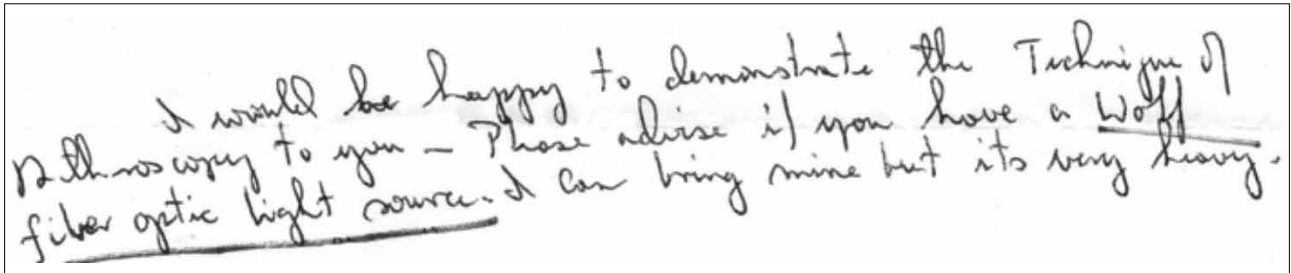 I would be happy to demonstrate the Technique of
Arthroscopy to you – Please advise if you have a Wolf
fiber optic light source. I can bring mine but its very heavy.